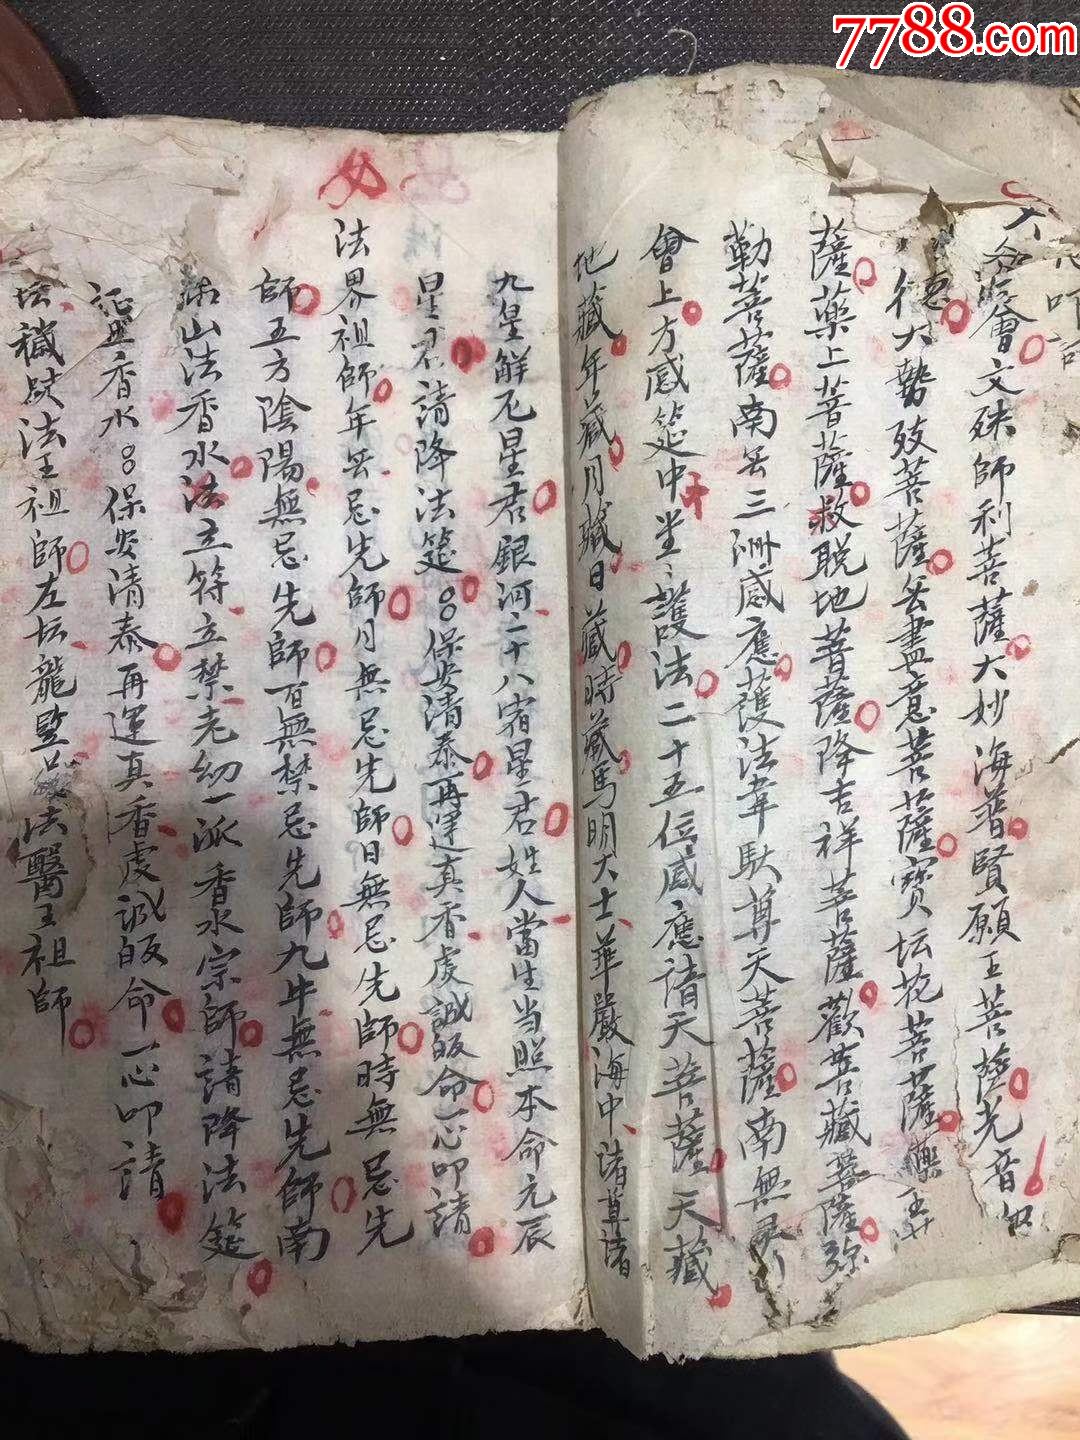 7788.com
心叩請
大会 會文殊師利菩薩大妙海普賢願王菩薩光音
德大勢致菩薩無盡意菩薩寶坛花菩薩藥王菩
薩藥上菩薩救脱地菩薩降吉祥菩薩歡喜藏菩薩弥
勒菩薩南無三洲感應護法韋馱尊天菩薩南無
會上方感筵中坐護法二十五位感應請天菩薩天藏
地藏年藏月藏日藏時藏馬明大士華嚴海中諸尊諸
九星解厄星君銀河二十八宿星君姓人當生当照本命元辰
星君請降法筵保安清泰再運真香虔誠皈命一心叩請
法界祖師年無忌先師月無忌先師日無忌先師時無忌先
師五方陰陽無忌先師百無禁忌先師九牛無忌先師南
山法香水法立符立禁老幼一派香水宗師請降法筵
証盟香水保安清泰再運真香虔誠皈命一心叩請
坛穢跡法王祖師左坛龍 法醫王祖師